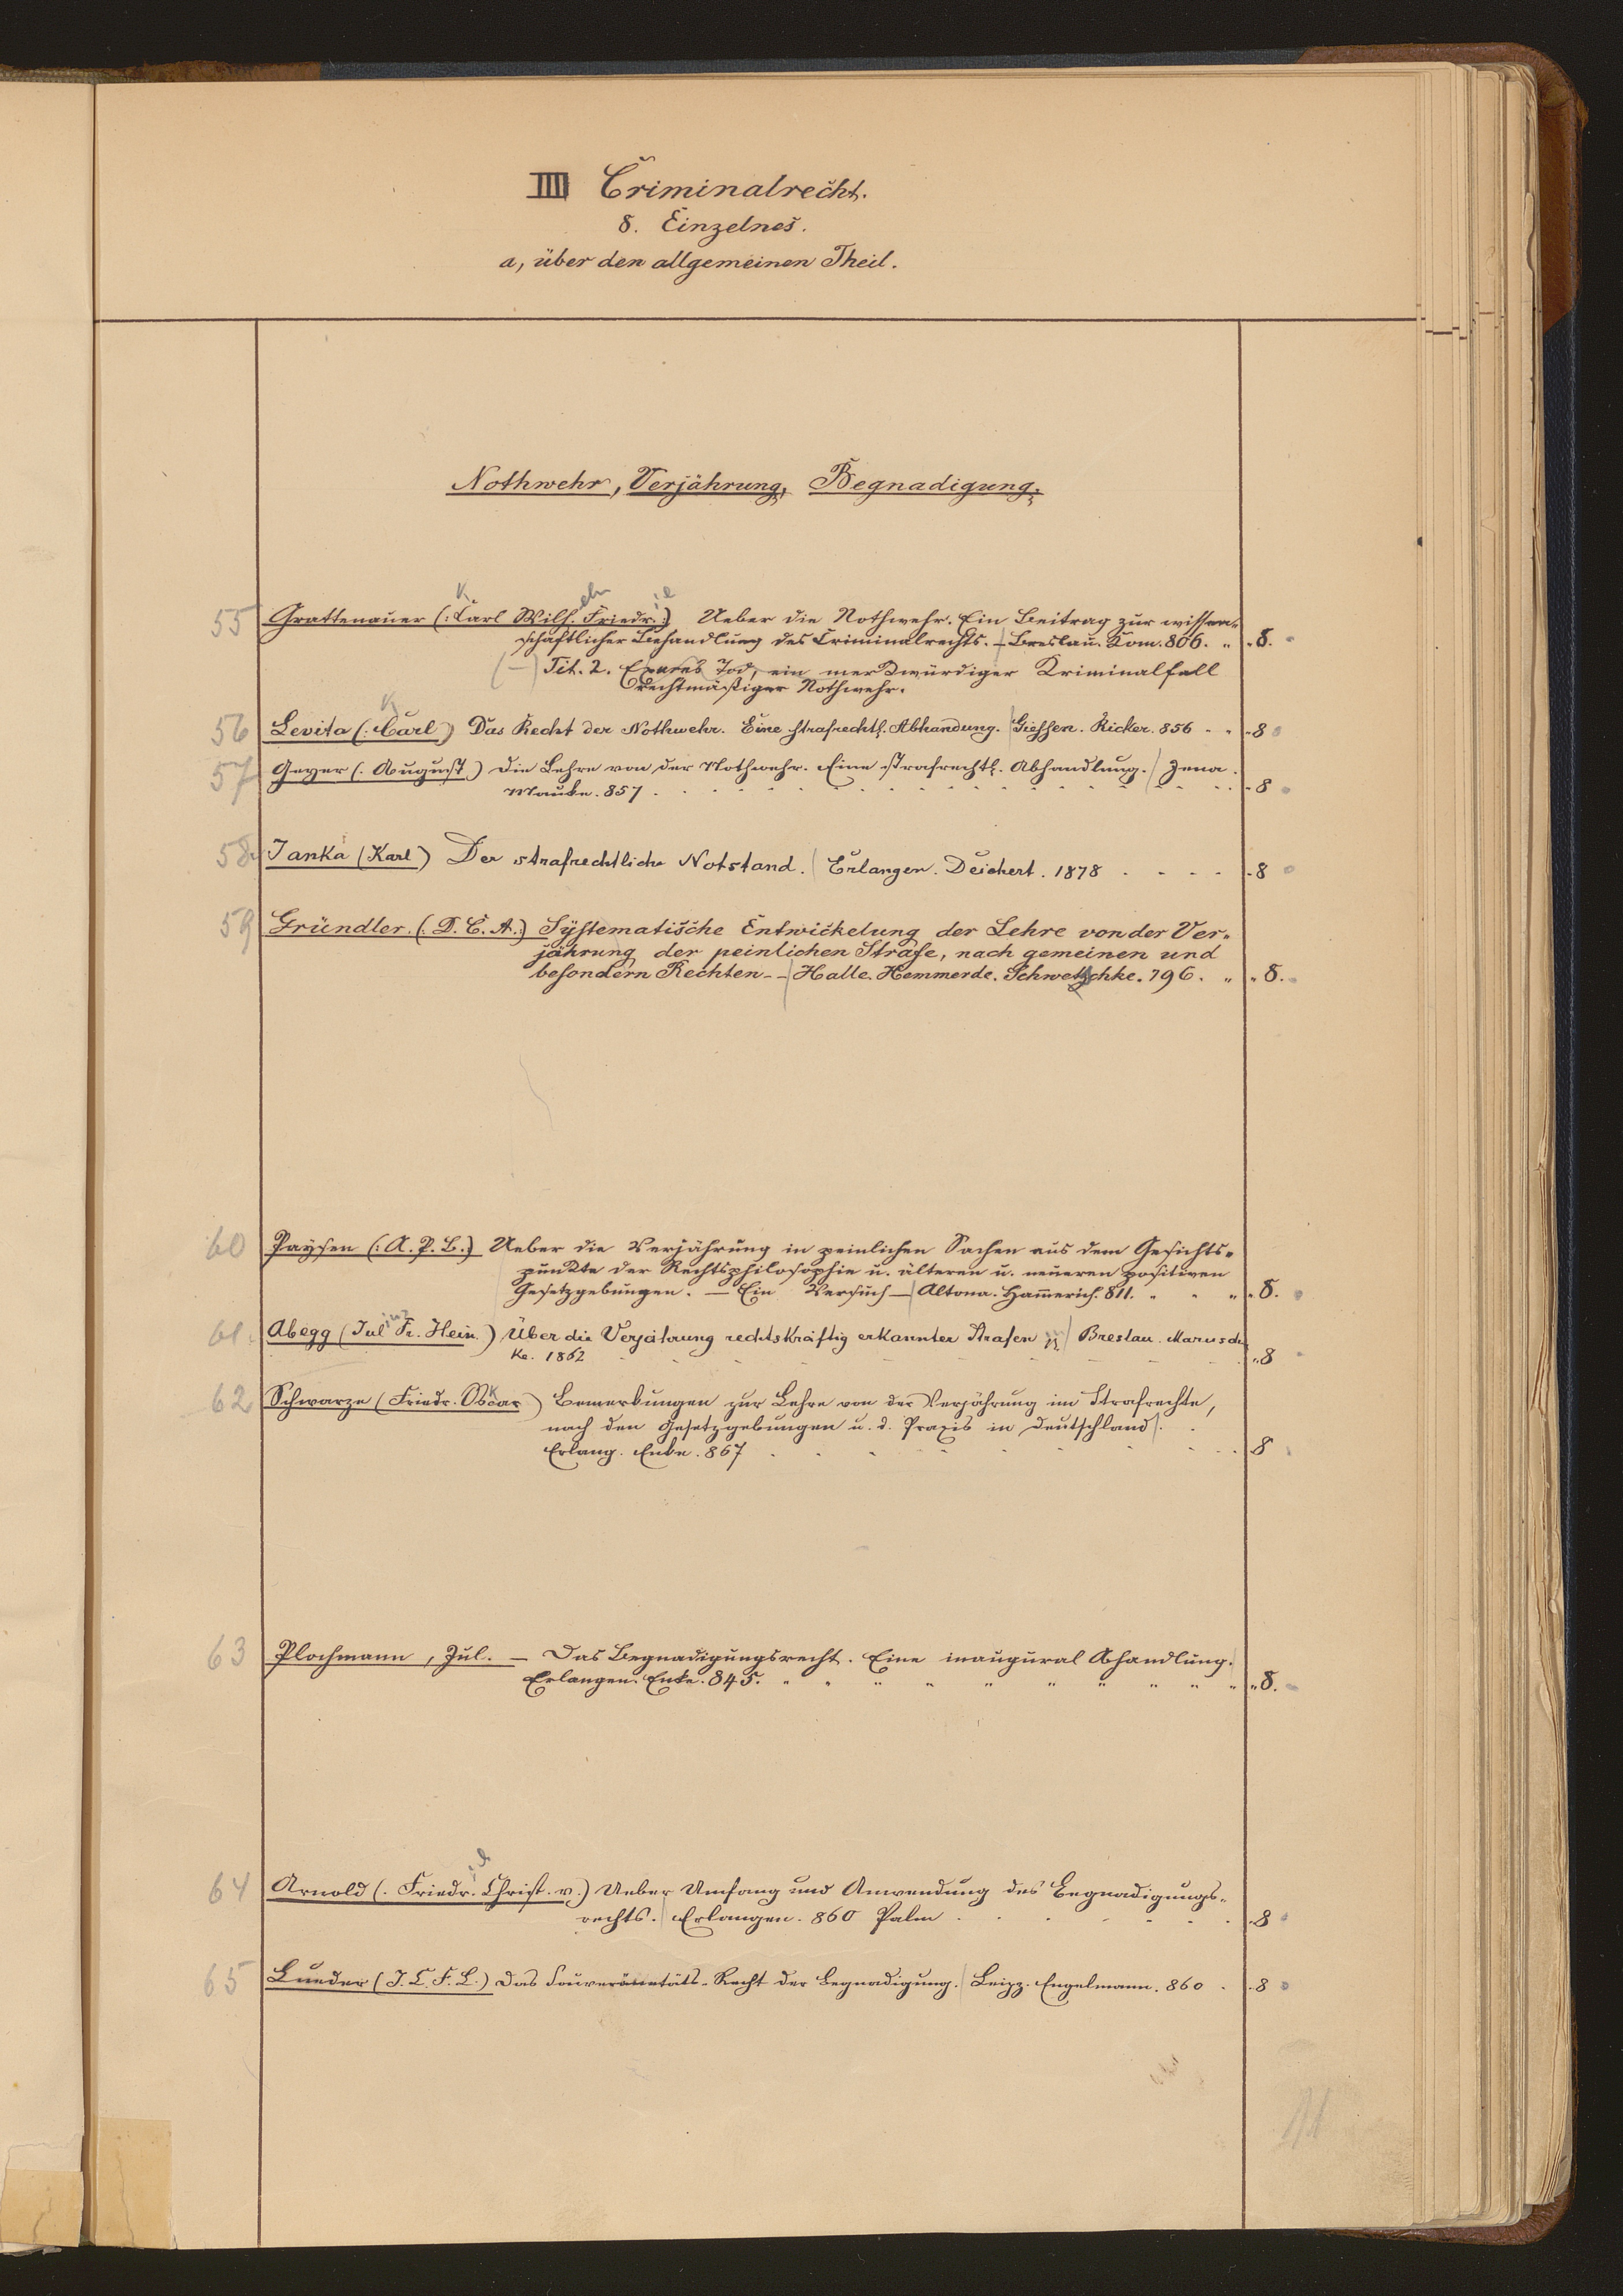 IIII Criminalrecht.
8. Einzelnes.
a, über den allgemeinen Theil.
Nothwehr, Verjährung, Begnadigung.
55 Grattenauer (: Carl Wilh. Friedr.:) Ueber die Nothwehr. Ein Beitrag zur wissen-
schaftlicher Behandlung des Criminalrechts. – Breslau. Kom. 806. „ 8.
(–) Tit. 2. Tod, ein merkwürdiger Kriminalfall
rechtmäßiger Nothwehr.
56 Levita (: Carl) Das Recht der Nothwehr. Eine strafrechtl. Abhandung. Giessen. Ricker. 856 - - 8
57 Geyer (. August.) Die Lehre von der Nothwehr. Eine strafrechtl. Abhandlung. Jena.
Mauke. 857 . . . 8
58 Janka (Karl) Der strafrechtliche Notstand. Erlangen. Deichert. 1878 . . . . 8
59 Gründler. (. D. C. A.:) Systematische Entwickelung der Lehre von der Ver-
jährung der peinlichen Strafe, nach gemeinen und
besondern Rechten – – Halle. Hemmerde. Schwetschke. 796. „ „ 8.
60 Paysen (: A. P. L.:) Ueber die Verjährung in peinlichen Sachen aus dem Gesichts-
punkte der Rechtsphilosophie u. älteren u. neueren positiven
Gesetzgebungen. – Ein Versuch – Altona. Hammerich. 811. „ „ „ 8.
61. Abegg (Jul Fr. Hein.) Über die Verjährung rechtskräftig erkannter Strafen Breslau. Marusch
ke. 1862 - - - „ 8
62 Schwarze (Friedr. Oscar) Bemerkungen zur Lehre von der Verjährung im Strafrechte,
nach den Gesetzgebungen u. d. Praxis in Deutschland.
Erlang. Enke. 867 . . . 8
63 Plochmann, Jul. – Das Begnadigungsrecht. Eine inaugural Abhandlung.
Erlangen. Enke. 845. „ „ „ „ „ „ „ „ „ „ 8.
64 Arnold (. Friedr. Christ. v.) Ueber Umfang und Anwendung des Begnadigungs-
rechts. Erlangen. 860 Palm . . . 8
65 Lueder (J. C. F. L.) Das Souveränetäts-Recht der Begnadigung. Leipz. Engelmann. 860 . 8